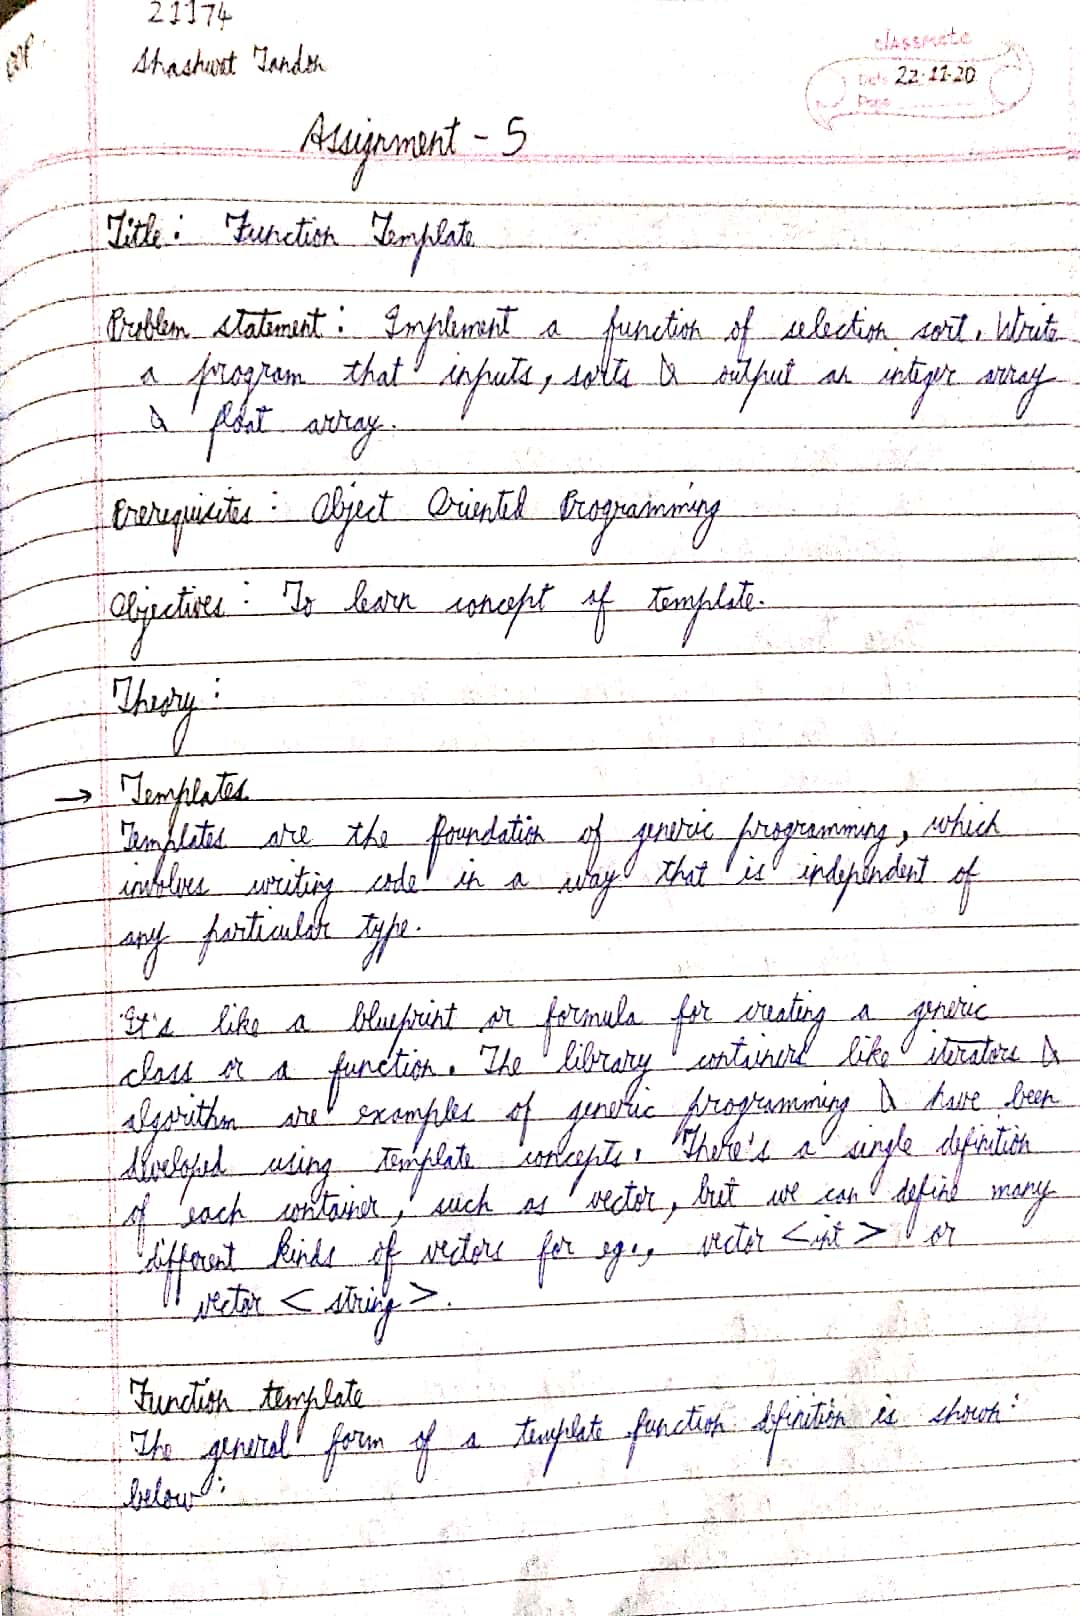 21174
OOP.
Shashwat Tandon
classmate
Date 22-11-20
Page
Assignment - 5
Title : Function Template
Problem statement : Implement a function of selection sort. Write
a program that inputs, sorts & output an integer array
& float array.
Prerequisites : Object Oriented Programming
Objectives : To learn concept of template.
Theory :
→ Templates
Templates are the foundation of generic programming, which
involves writing code in a way that is independent of
any particular type.
It's like a blueprint or formula for creating a generic
class or a function. The library containers like iterators &
algorithm are examples of generic programming & have been
developed using template concepts. There's a single definition
of each container, such as vector, but we can define many
different kinds of vectors for eg., vector <int> or
vector < string >.
Function template
The general form of a template function definition is shown :
below :